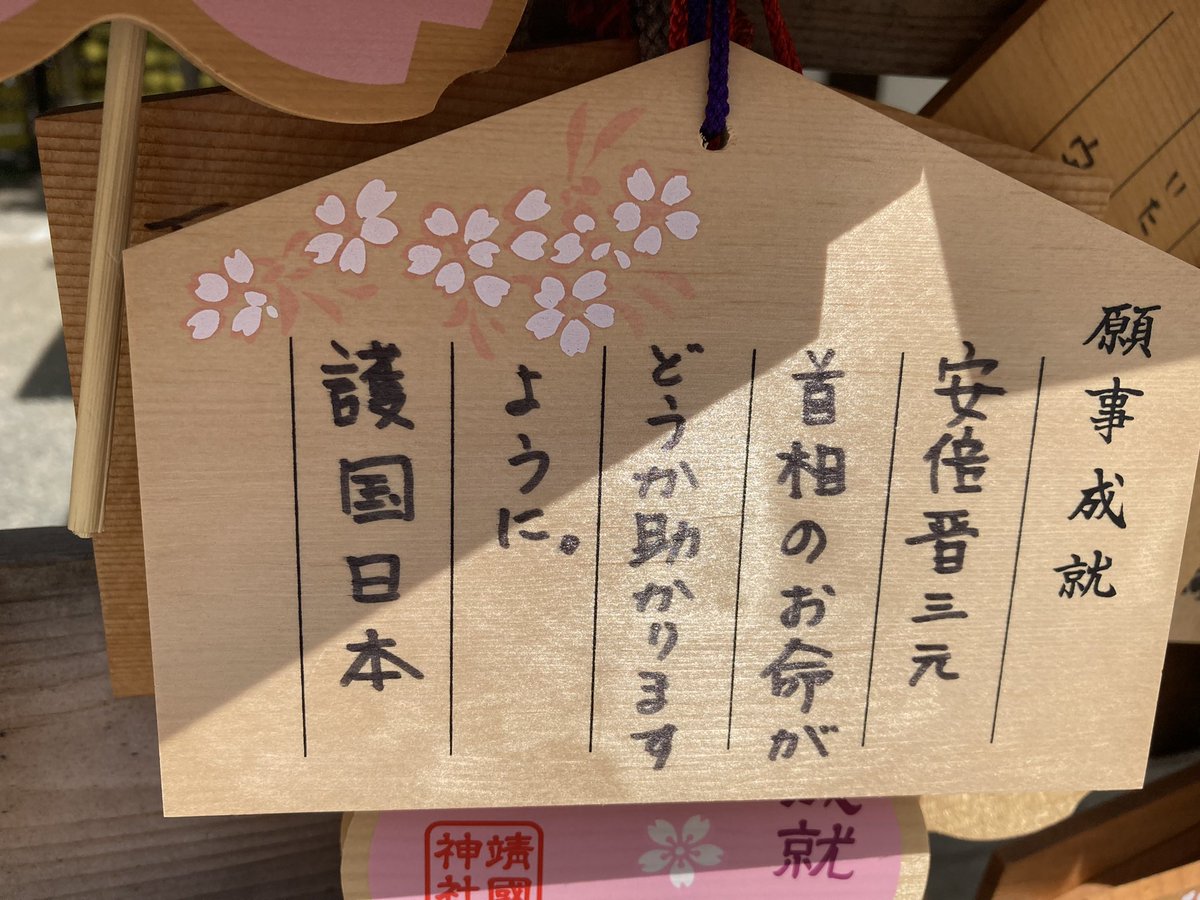 願事成就
安倍晋三元
首相のお命が
どうか助かります
ように。
護国日本
成就
靖國
神社